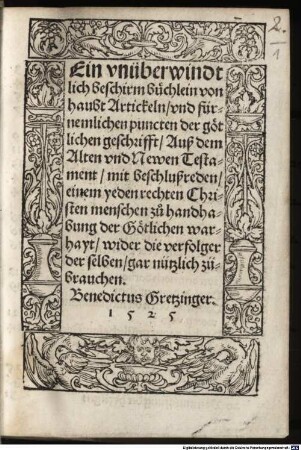 2.
1
Ein vnüberwindt
lich beschirm büchlein von
haubt Artickeln/vnd für-
nemlichen puncten der göt
lichen geschrifft/Auß dem
Alten vnd Newen Testa-
ment/mit beschlußreden/
einem yeden rechten Chri-
sten menschen zů handha-
bung der Götlichen war-
hayt/wider die verfolger
der selben/gar nützlich zů-
brauchen.
Benedictus Gretzinger.
1525